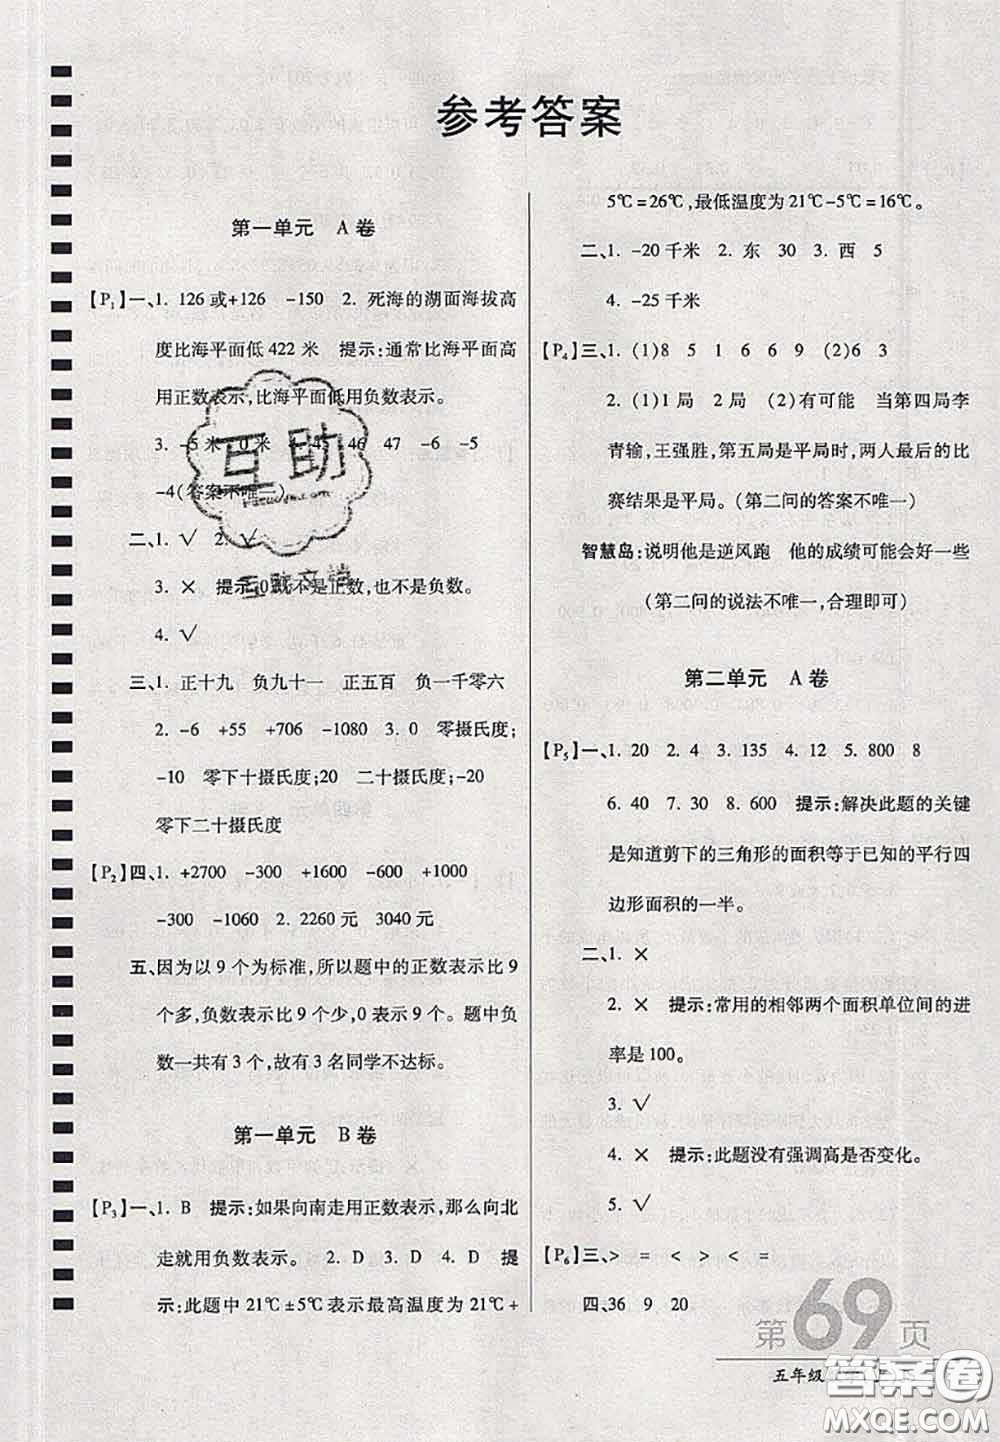 参考答案
第一单元 A卷
【P1】一、1. 126或+126 -150 2. 死海的湖面海拔高
度比海平面低422米 提示:通常比海平面高
用正数表示,比海平面低用负数表示。
3. -5米 0米 45 46 47 -6 -5
-4(答案不唯一)
二、1. √ 2. √
3. × 提示:0既不是正数,也不是负数。
4. √
三、1. 正十九 负九十一 正五百 负一千零六
2. -6 +55 +706 -1080 3. 0 零摄氏度;
-10 零下十摄氏度;20 二十摄氏度;-20
零下二十摄氏度
【P2】四、1. +2700 -300 +1600 -600 +1000
-300 -1060 2. 2260元 3040元
五、因为以9个为标准,所以题中的正数表示比9
个多,负数表示比9个少,0表示9个。题中负
数一共有3个,故有3名同学不达标。
第一单元 B卷
【P3】一、1. B 提示:如果向南走用正数表示,那么向北
走就用负数表示。 2. D 3. D 4. D 提
示:此题中21℃±5℃表示最高温度为21℃+
5℃=26℃,最低温度为21℃-5℃=16℃。
二、1. -20千米 2. 东 30 3. 西 5
4. -25千米
【P4】三、1. (1)8 5 1 6 6 9 (2)6 3
2. (1)1局 2局 (2)有可能 当第四局李
青输,王强胜,第五局是平局时,两人最后的比
赛结果是平局。(第二问的答案不唯一)
智慧岛:说明他是逆风跑 他的成绩可能会好一些
(第二问的说法不唯一,合理即可)
第二单元 A卷
【P5】一、1. 20 2. 4 3. 135 4. 12 5. 800 8
6. 40 7. 30 8. 600 提示:解决此题的关键
是知道剪下的三角形的面积等于已知的平行四
边形面积的一半。
二、1. ×
2. × 提示:常用的相邻两个面积单位间的进
率是100。
3. √
4. × 提示:此题没有强调高是否变化。
5. √
【P6】三、> = < > < =
四、36 9 20
第69页
五年级
互助
互助文学
答案卷
MXQE.COM